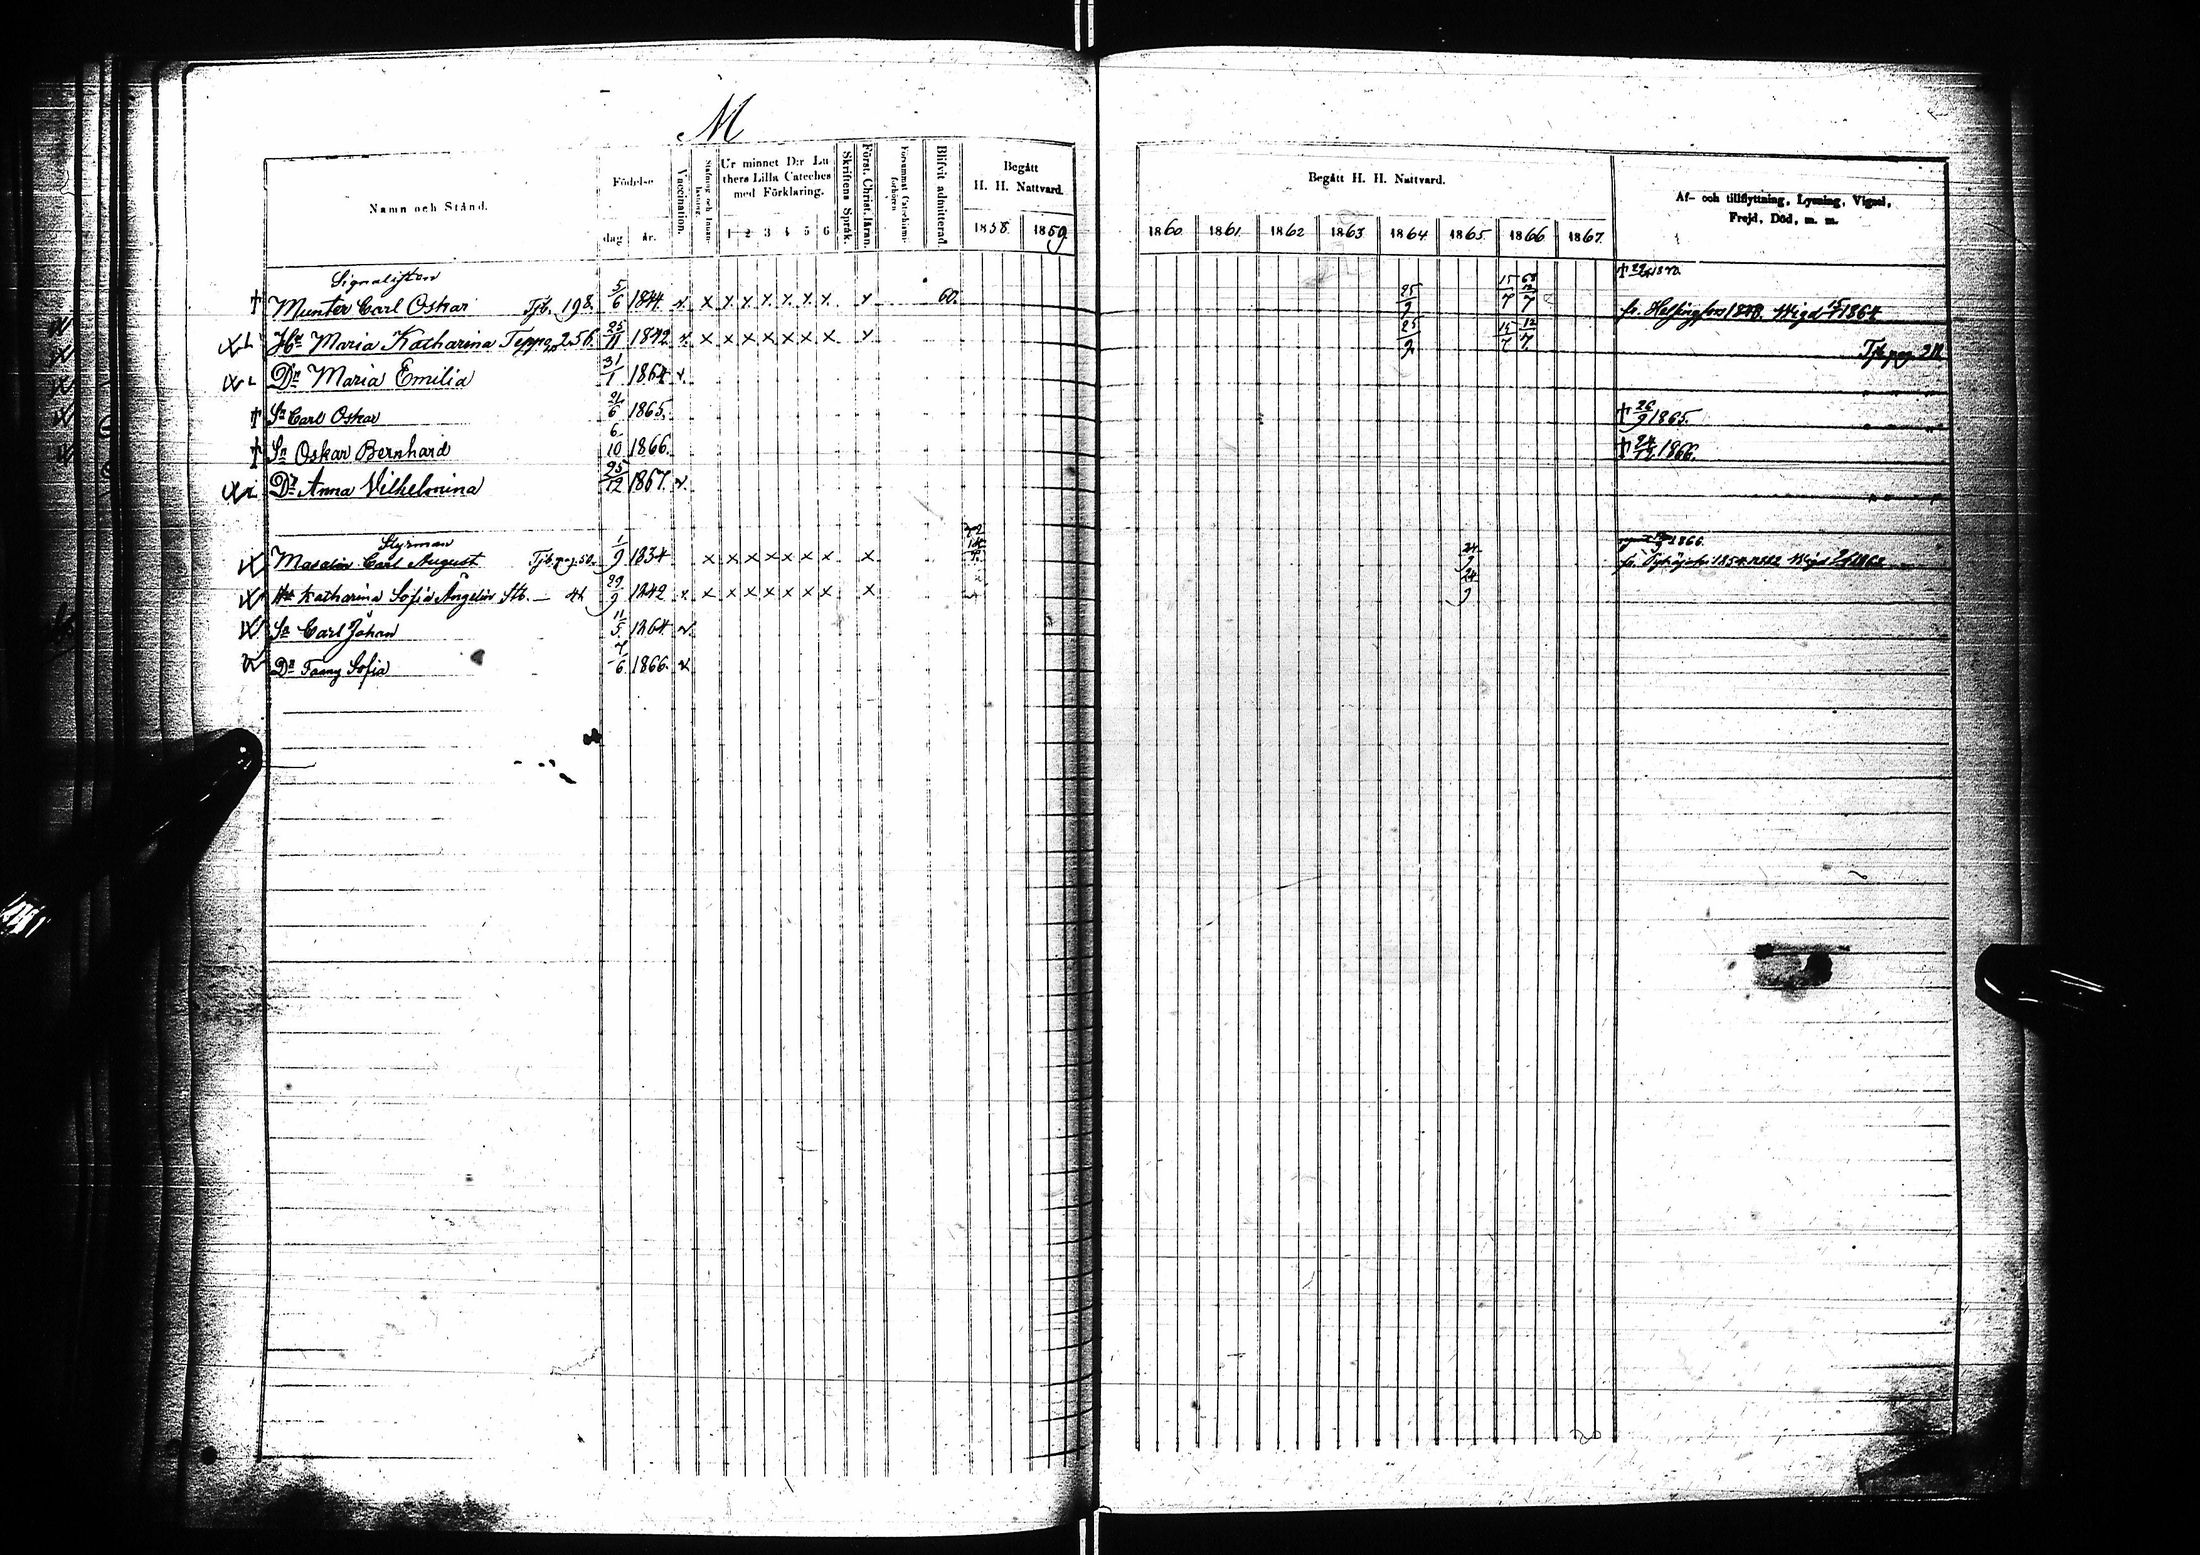 M
Namn och Stånd.
Födelse
dag
år.
Vaccination.
Stafning och Innanläsning.
Ur minnet D:r Lu
thers Lilla Cateches
med Förklaring.
1 2 3 4 5 6
Skriftens Språk.
Först. Christ. läran.
Försummat Catechismi-
förhören
Blifvit admitterad.
Begått
H. H. Nattvard.
1858. 1859.
Begått H. H. Nattvard.
1860 1861 1862 1863 1864 1865 1866 1867.
Af- och tillflyttning, Lysning, Vigsel,
Frejd, Död, m. m.
Signalisten
† Munter Carl Oskar Tjb. 198. 5/6 1844. x x x x x x x x x 60. 25/9 15/7 12/7 fr. Helsingfors Wigd 15/7 1864
Hu Maria Katharina Teppo 256. 25/11 1842 x x x x x x x x x 25/9 15/7 12/7 Tjb pag. 211
Dr Maria Emilia 31/1 1864 x
† Sn Carl Oskar 21/6 1865. † 26/9 1865.
† Sn Oskar Bernhard 6/10 1866. † 24/12 1866.
Dr Anna Vilhelmina 25/12 1867. x
Styrman
Masalin Carl August Tjb. pag. 50. 1/9 1834 x x x x x x x x 24/9
Hu Katharina Sofia Ångelin Stb. 41 29/9 1842 x x x x x x x x x 24/9
Sn Carl Johan 11/5 1864 x
Dr Fanny Sofia 7/6 1866. x